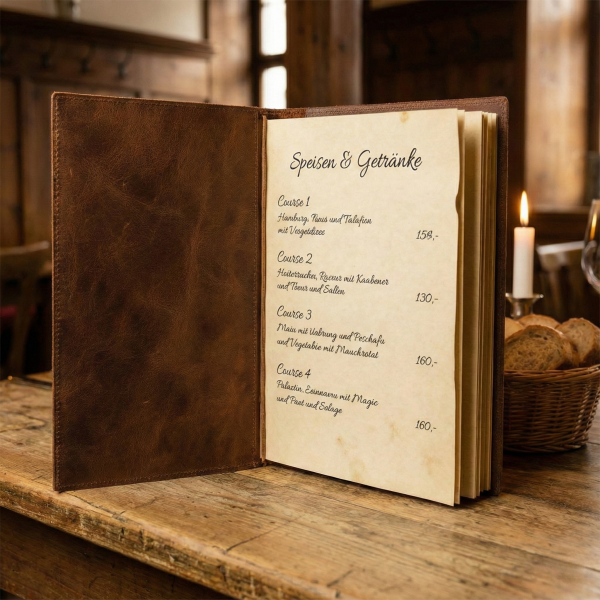 Speisen & Getränke
Course 1
Hamburg, Tieus und Talafien
mit Vesgetdices
154,-
Course 2
Hoiterrachei, Raceur mit Kaabener
und Toeur und Sallen
130,-
Course 3
Maiu mit Uobrung und Peschafs
und Vegetabie mit Mauckrotat
160,-
Course 4
Palactin, mit Magie
und Paot und Solage
160,-